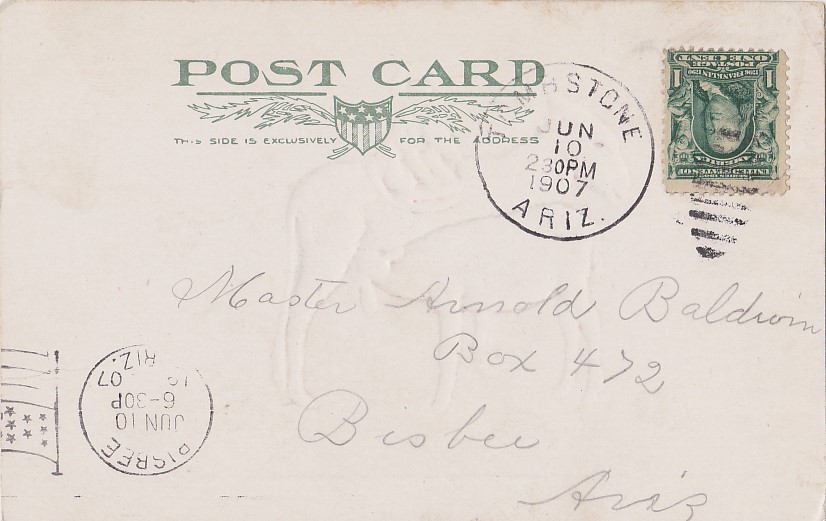 POST CARD
THIS SIDE IS EXCLUSIVELY FOR THE ADDRESS
TOMBSTONE
JUN
10
230PM
1907
ARIZ.
ONE CENT
POSTAGE
1 FRANKLIN 1
Master Arnold Baldwin
Box 472
Bisbee
Ariz
BISBEE
JUN 10
6-30P
07
RIZ.